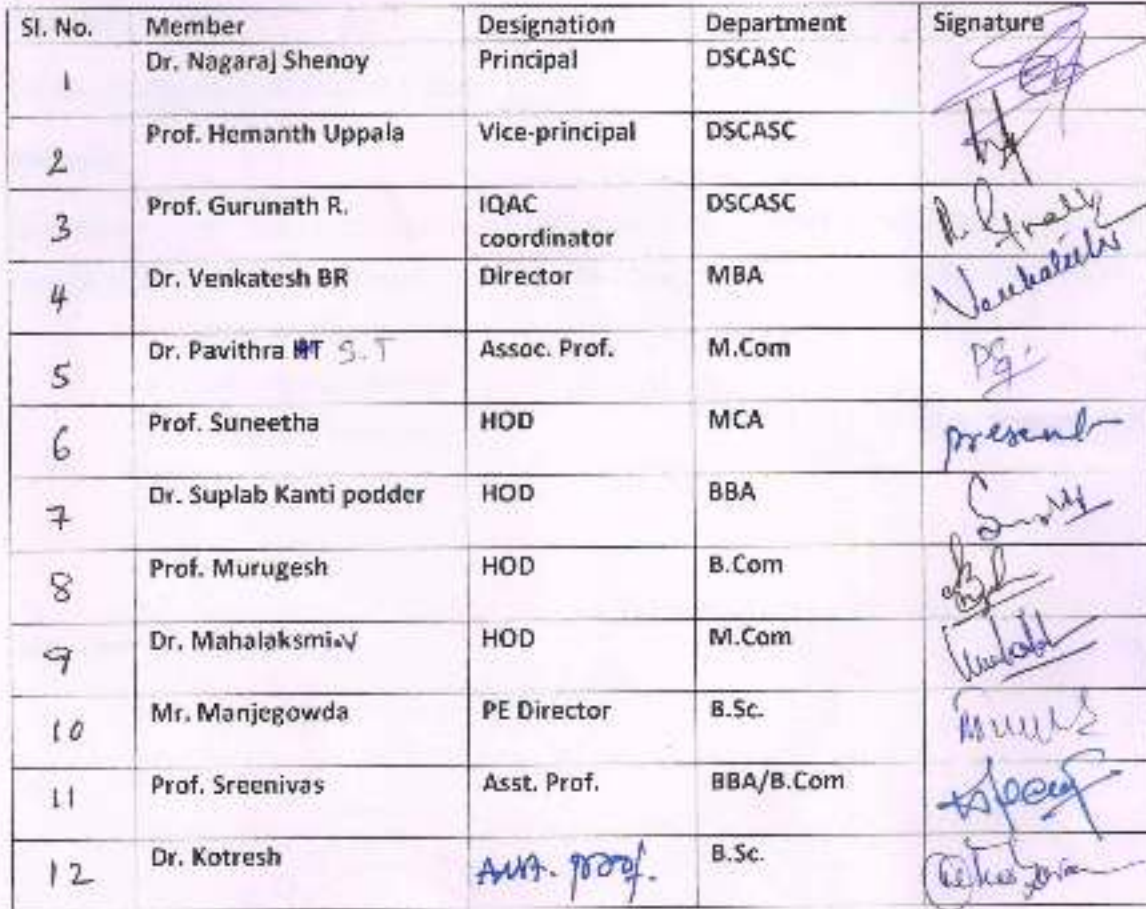 Sl. No. Member Designation Department Signature
1 Dr. Nagaraj Shenoy Principal DSCASC
2 Prof. Hemanth Uppala Vice-principal DSCASC
3 Prof. Gurunath R. IQAC DSCASC
coordinator
4 Dr. Venkatesh BR Director MBA Venkatesh
5 Dr. Pavithra S.T Assoc. Prof. M.Com
6 Prof. Suneetha HOD MCA present
7 Dr. Suplab Kanti podder HOD BBA
8 Prof. Murugesh HOD B.Com
9 Dr. Mahalaksmi.V HOD M.Com
10 Mr. Manjegowda PE Director B.Sc.
11 Prof. Sreenivas Asst. Prof. BBA/B.Com
12 Dr. Kotresh Asst. prof. B.Sc.